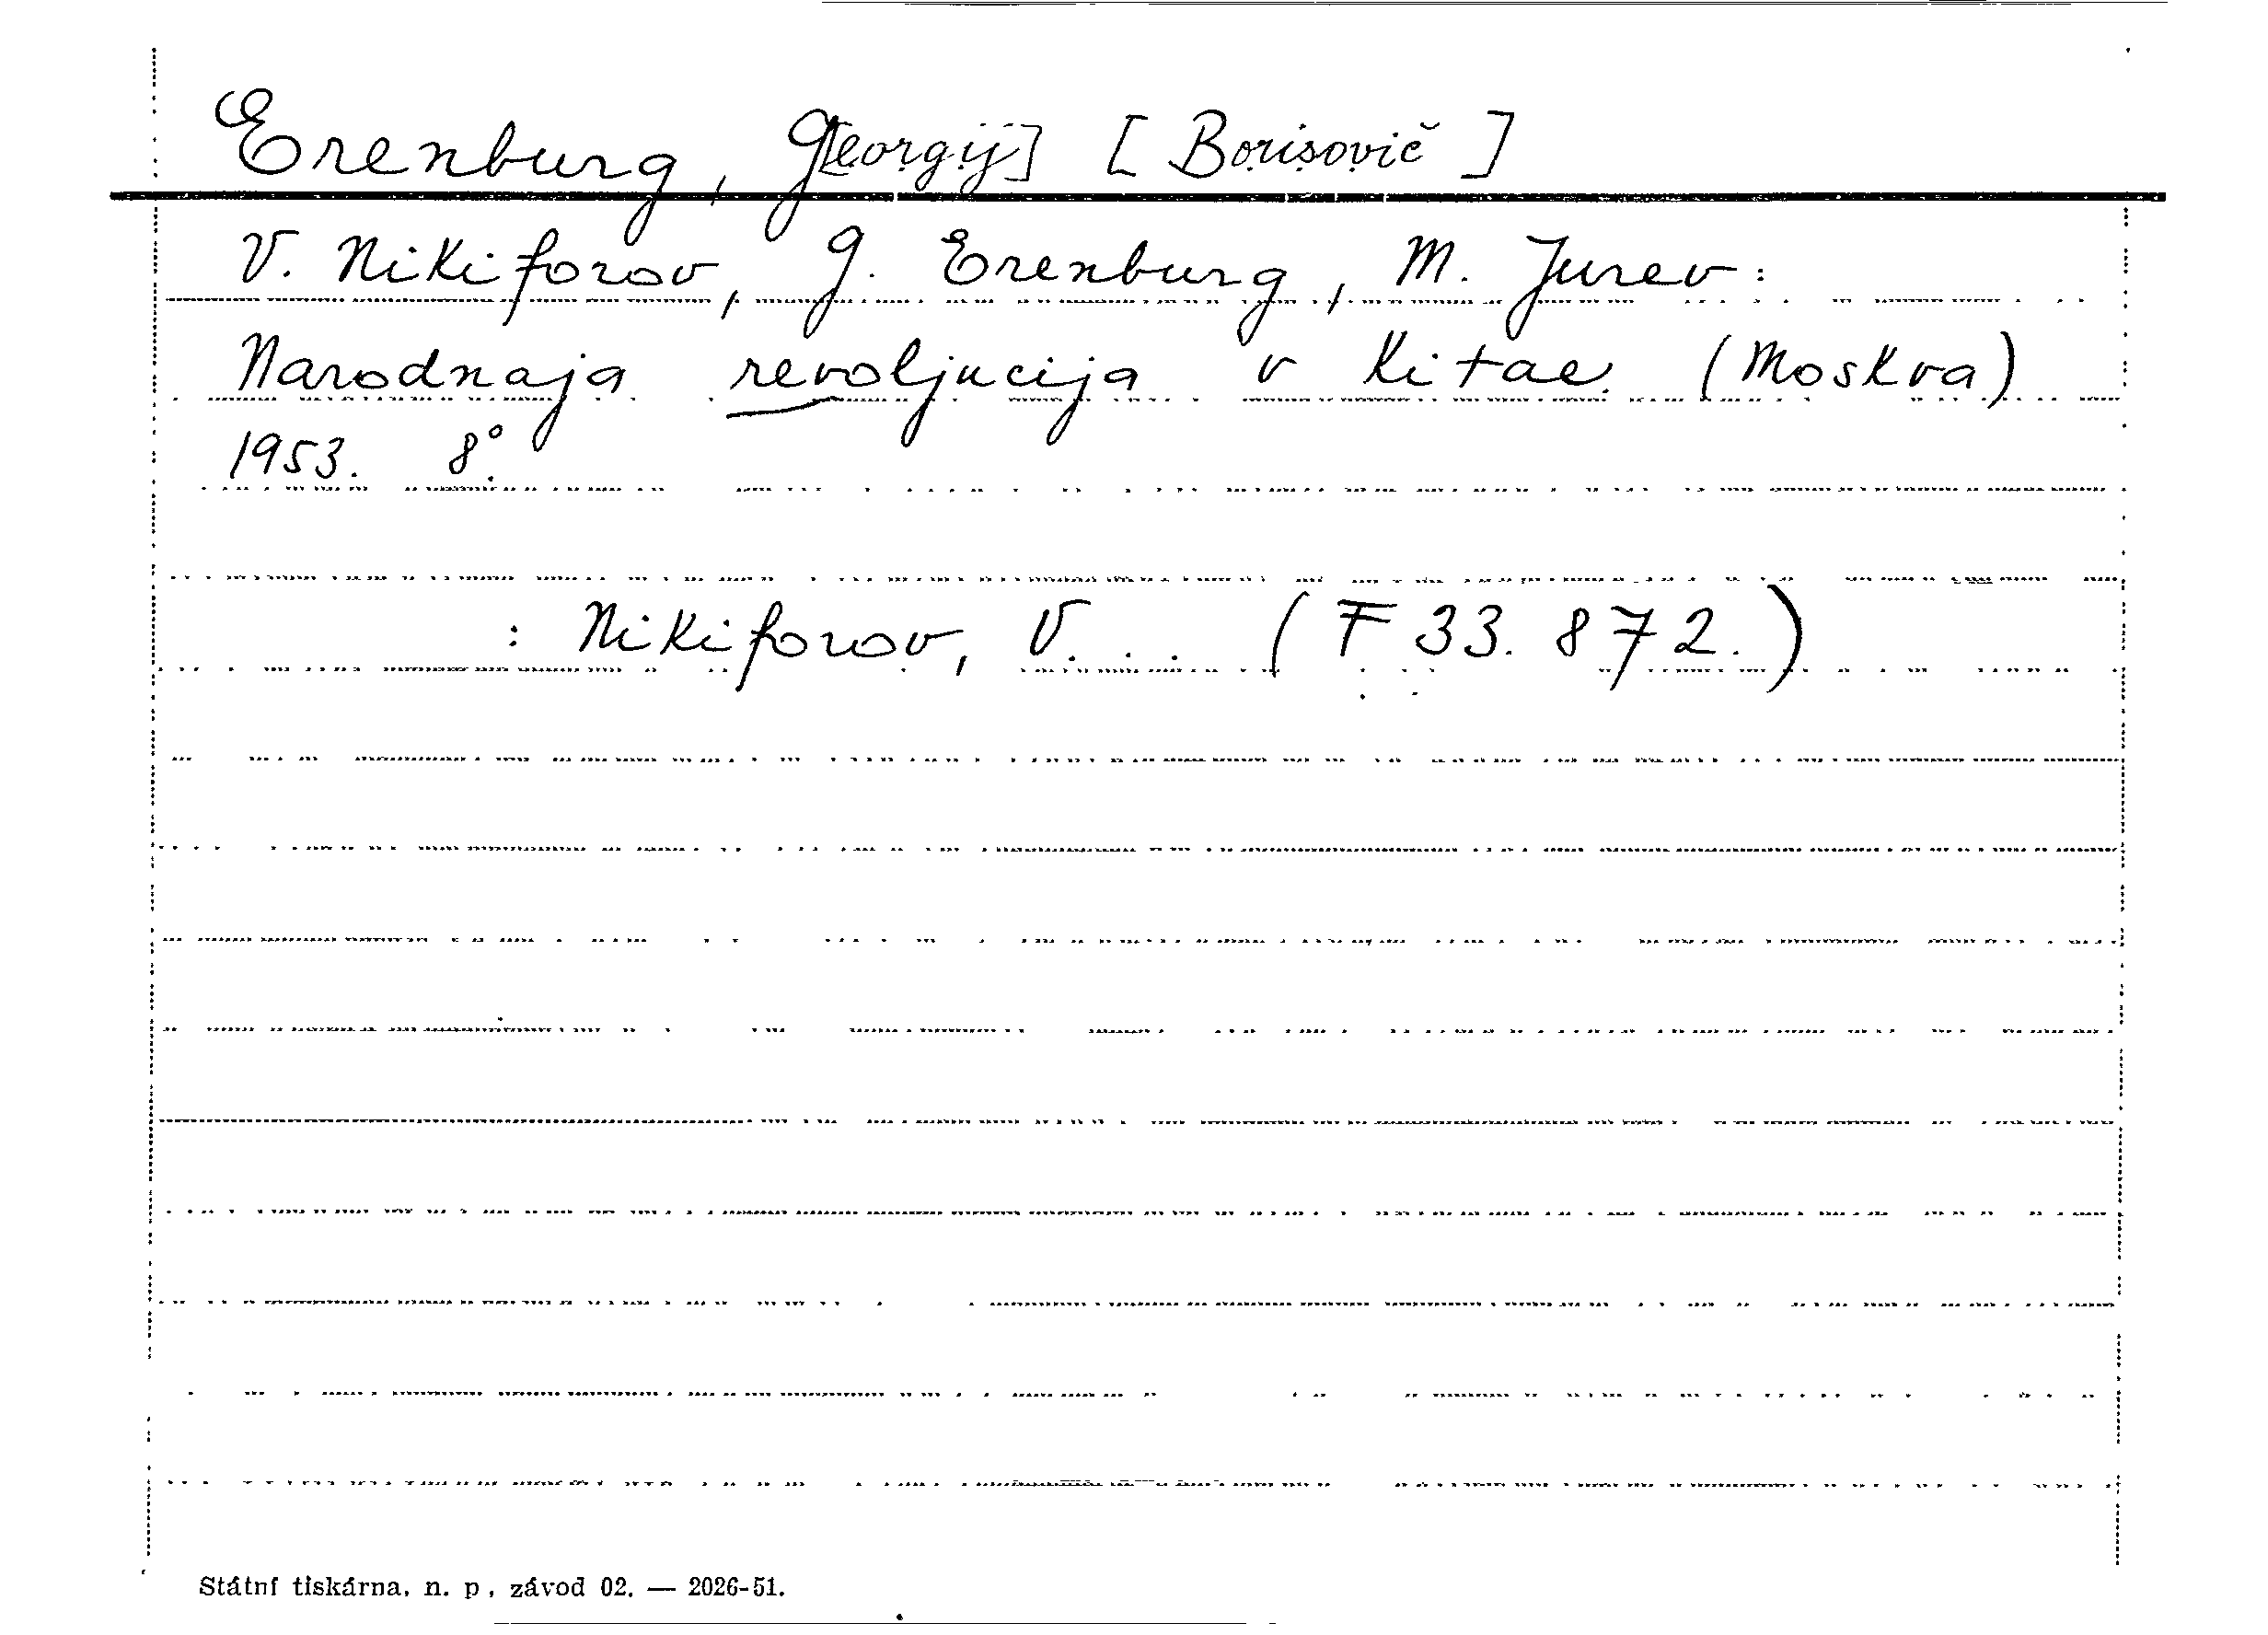 Erenburg, G[eorgij] [Borisovič]
V. Nikiforov, G. Erenburg, M. Jurev:
Narodnaja revoljucija v Kitae. (Moskva)
1953. 8°.
: Nikiforov, V... (F 33.872.)
Státní tiskárna, n. p., závod 02. — 2026-51.